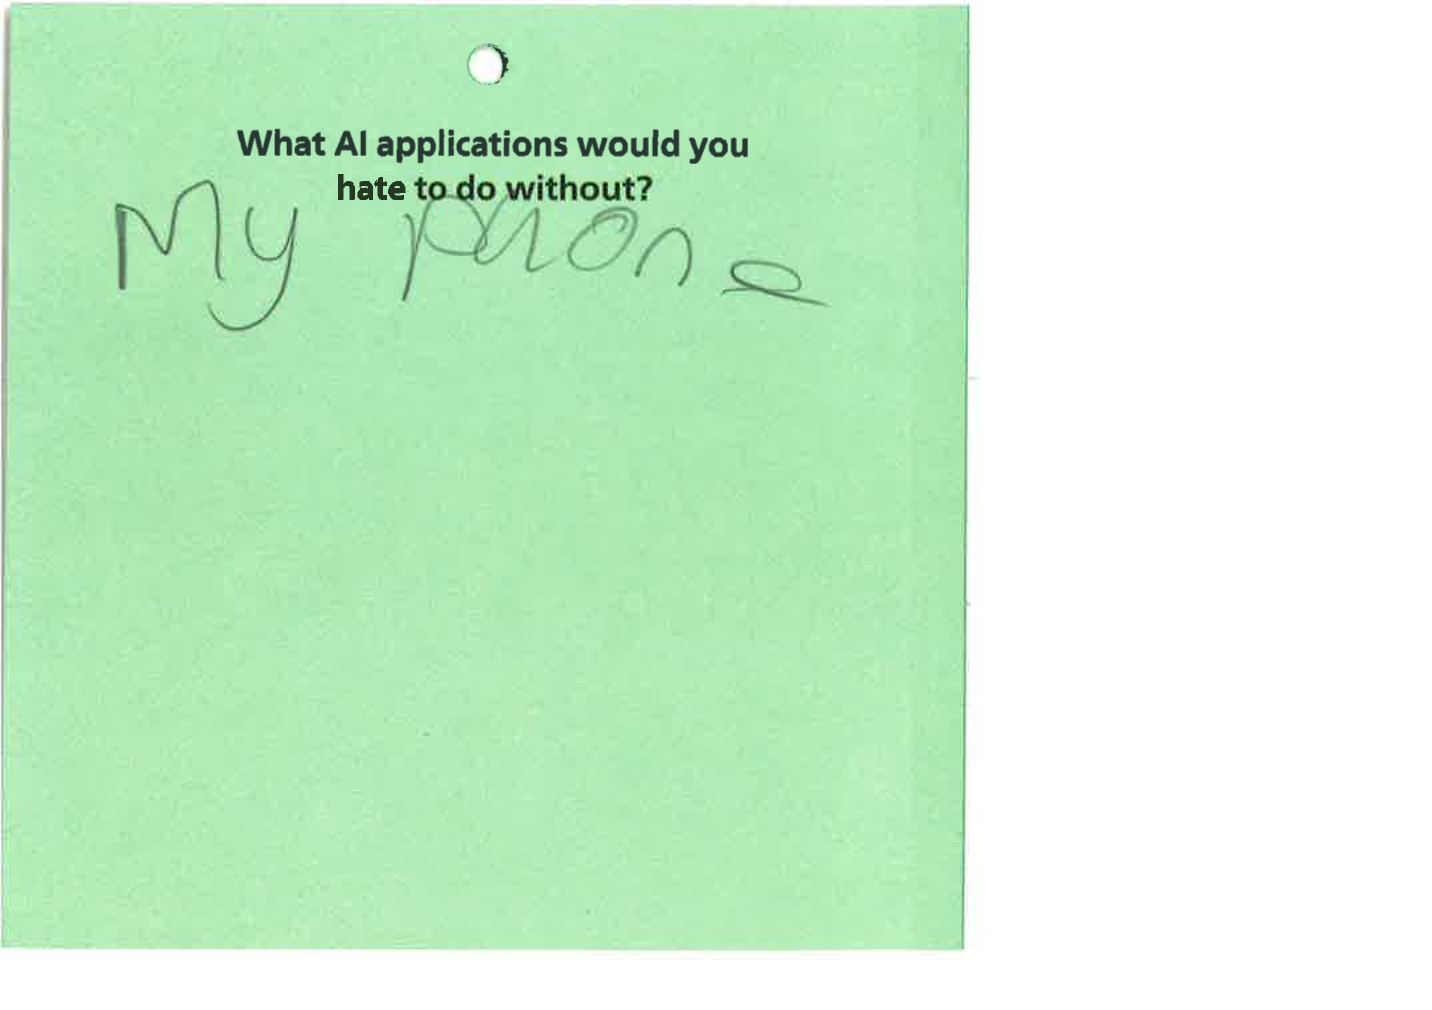 What AI applications would you
hate to do without?
My phone